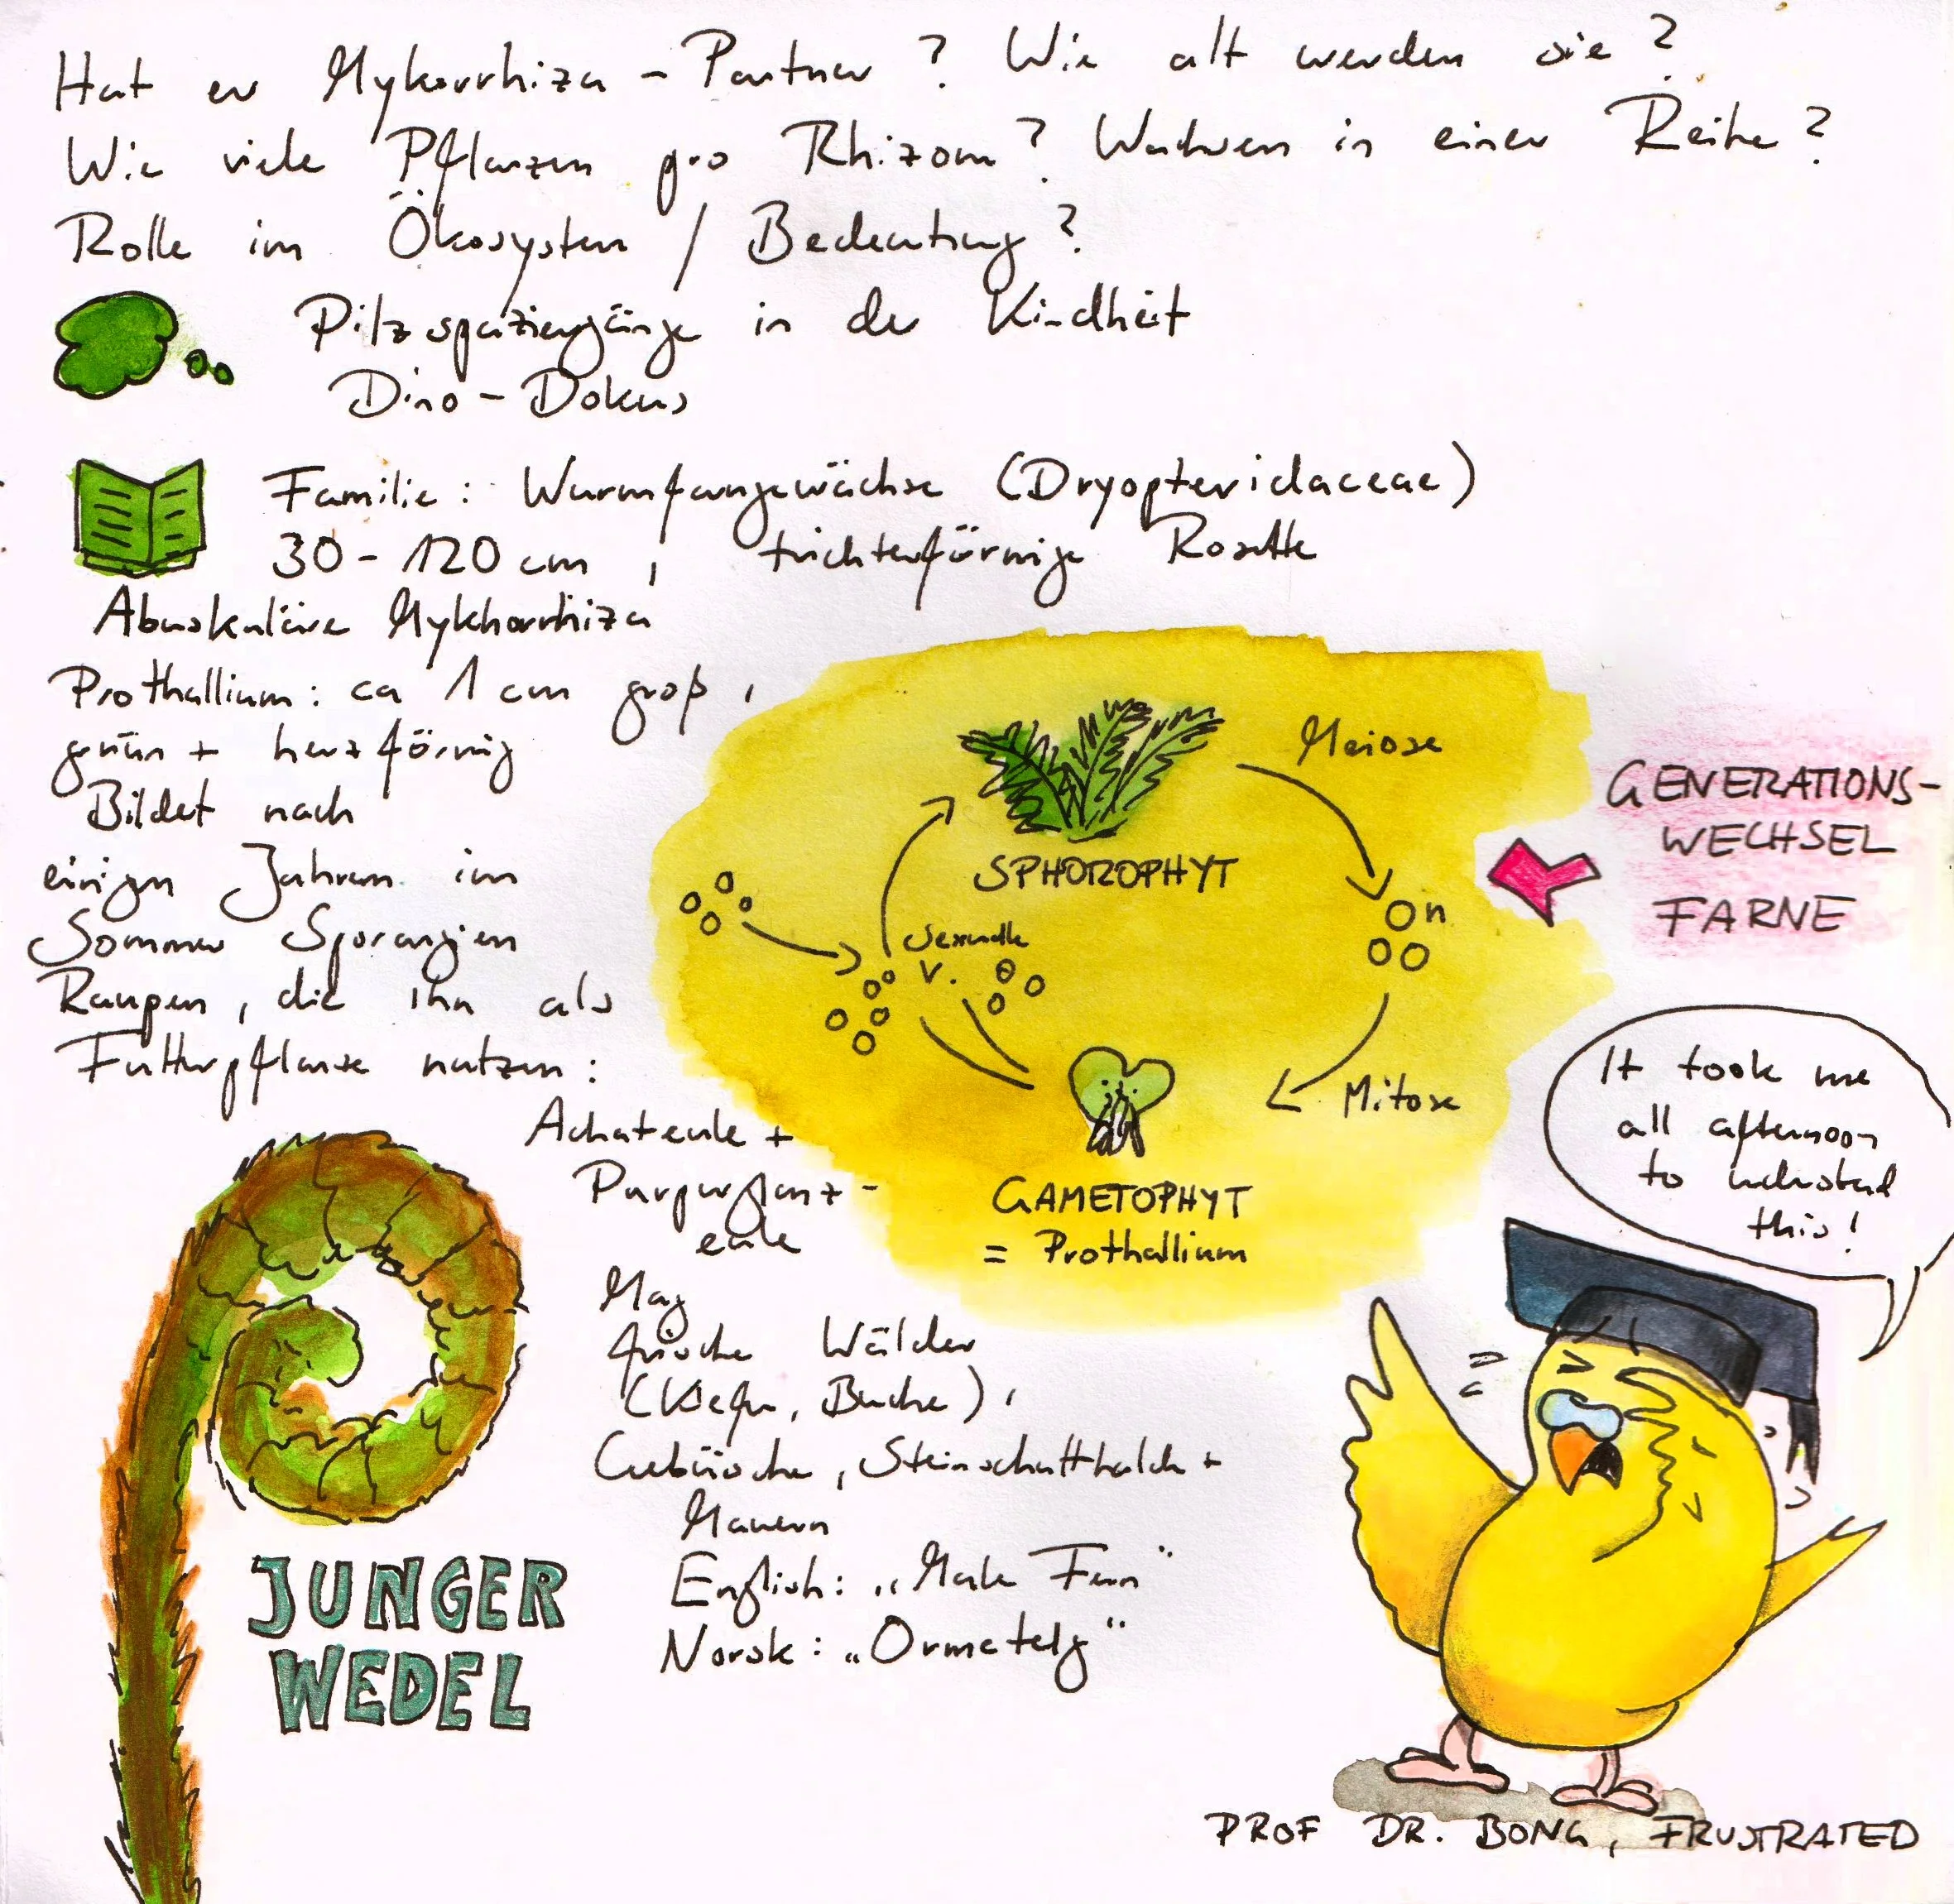 Hat er Mykorrhiza - Partner? Wie alt werden sie?
Wie viele Pflanzen pro Rhizom? Wachsen in einer Reihe?
Rolle im Ökosystem / Bedeutung?
Pilzspaziergänge in der Kindheit
Dino-Dokus
Familie: Wurmfarngewächse (Dryopteridaceae)
30-120 cm, trichterförmige Rosette
Abuskuläre Mykhorrhiza
Prothallium: ca 1 cm groß,
grün + herzförmig
Bildet nach
einigen Jahren im
Sommer Sporangien
Raupen, die ihn als
Futterpflanze nutzen:
Achateule +
Purpurglanz-
eule
Mag
frische Wälder
(Kiefer, Buche),
Gebüsche, Steinschutthalde +
Mauern
English: „Male Fern"
Norsk: „Ormetelg"
Meiose
SPHOROPHYT
n
Sexuelle
V.
Mitose
GAMETOPHYT
= Prothallium
GENERATIONS-
WECHSEL
FARNE
It took me
all afternoon
to understand
this!
JUNGER
WEDEL
PROF DR. BONG, FRUSTRATED